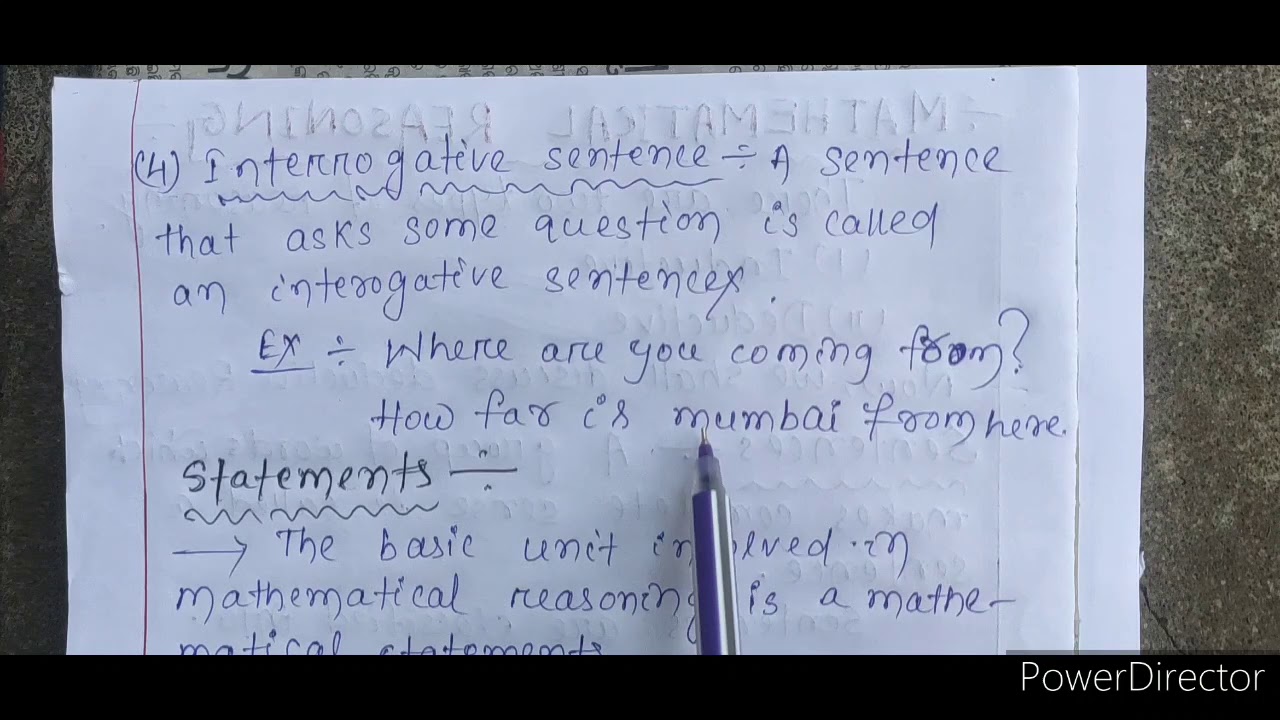 (4) Interrogative sentence ÷ A sentence
that asks some question is called
an interogative sentence.
Ex ÷ Where are you coming from?
How far is mumbai from here.
Statements ÷
→ The basic unit involved in
mathematical reasoning is a mathe-
matical statements
PowerDirector